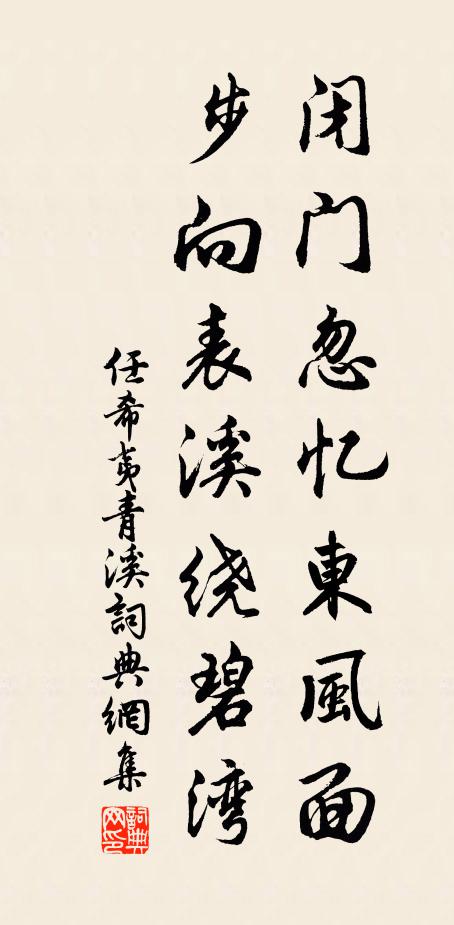 闭门忽忆東風面
步向表溪绕碧湾
任希夷青溪詞典網集
詞典网印